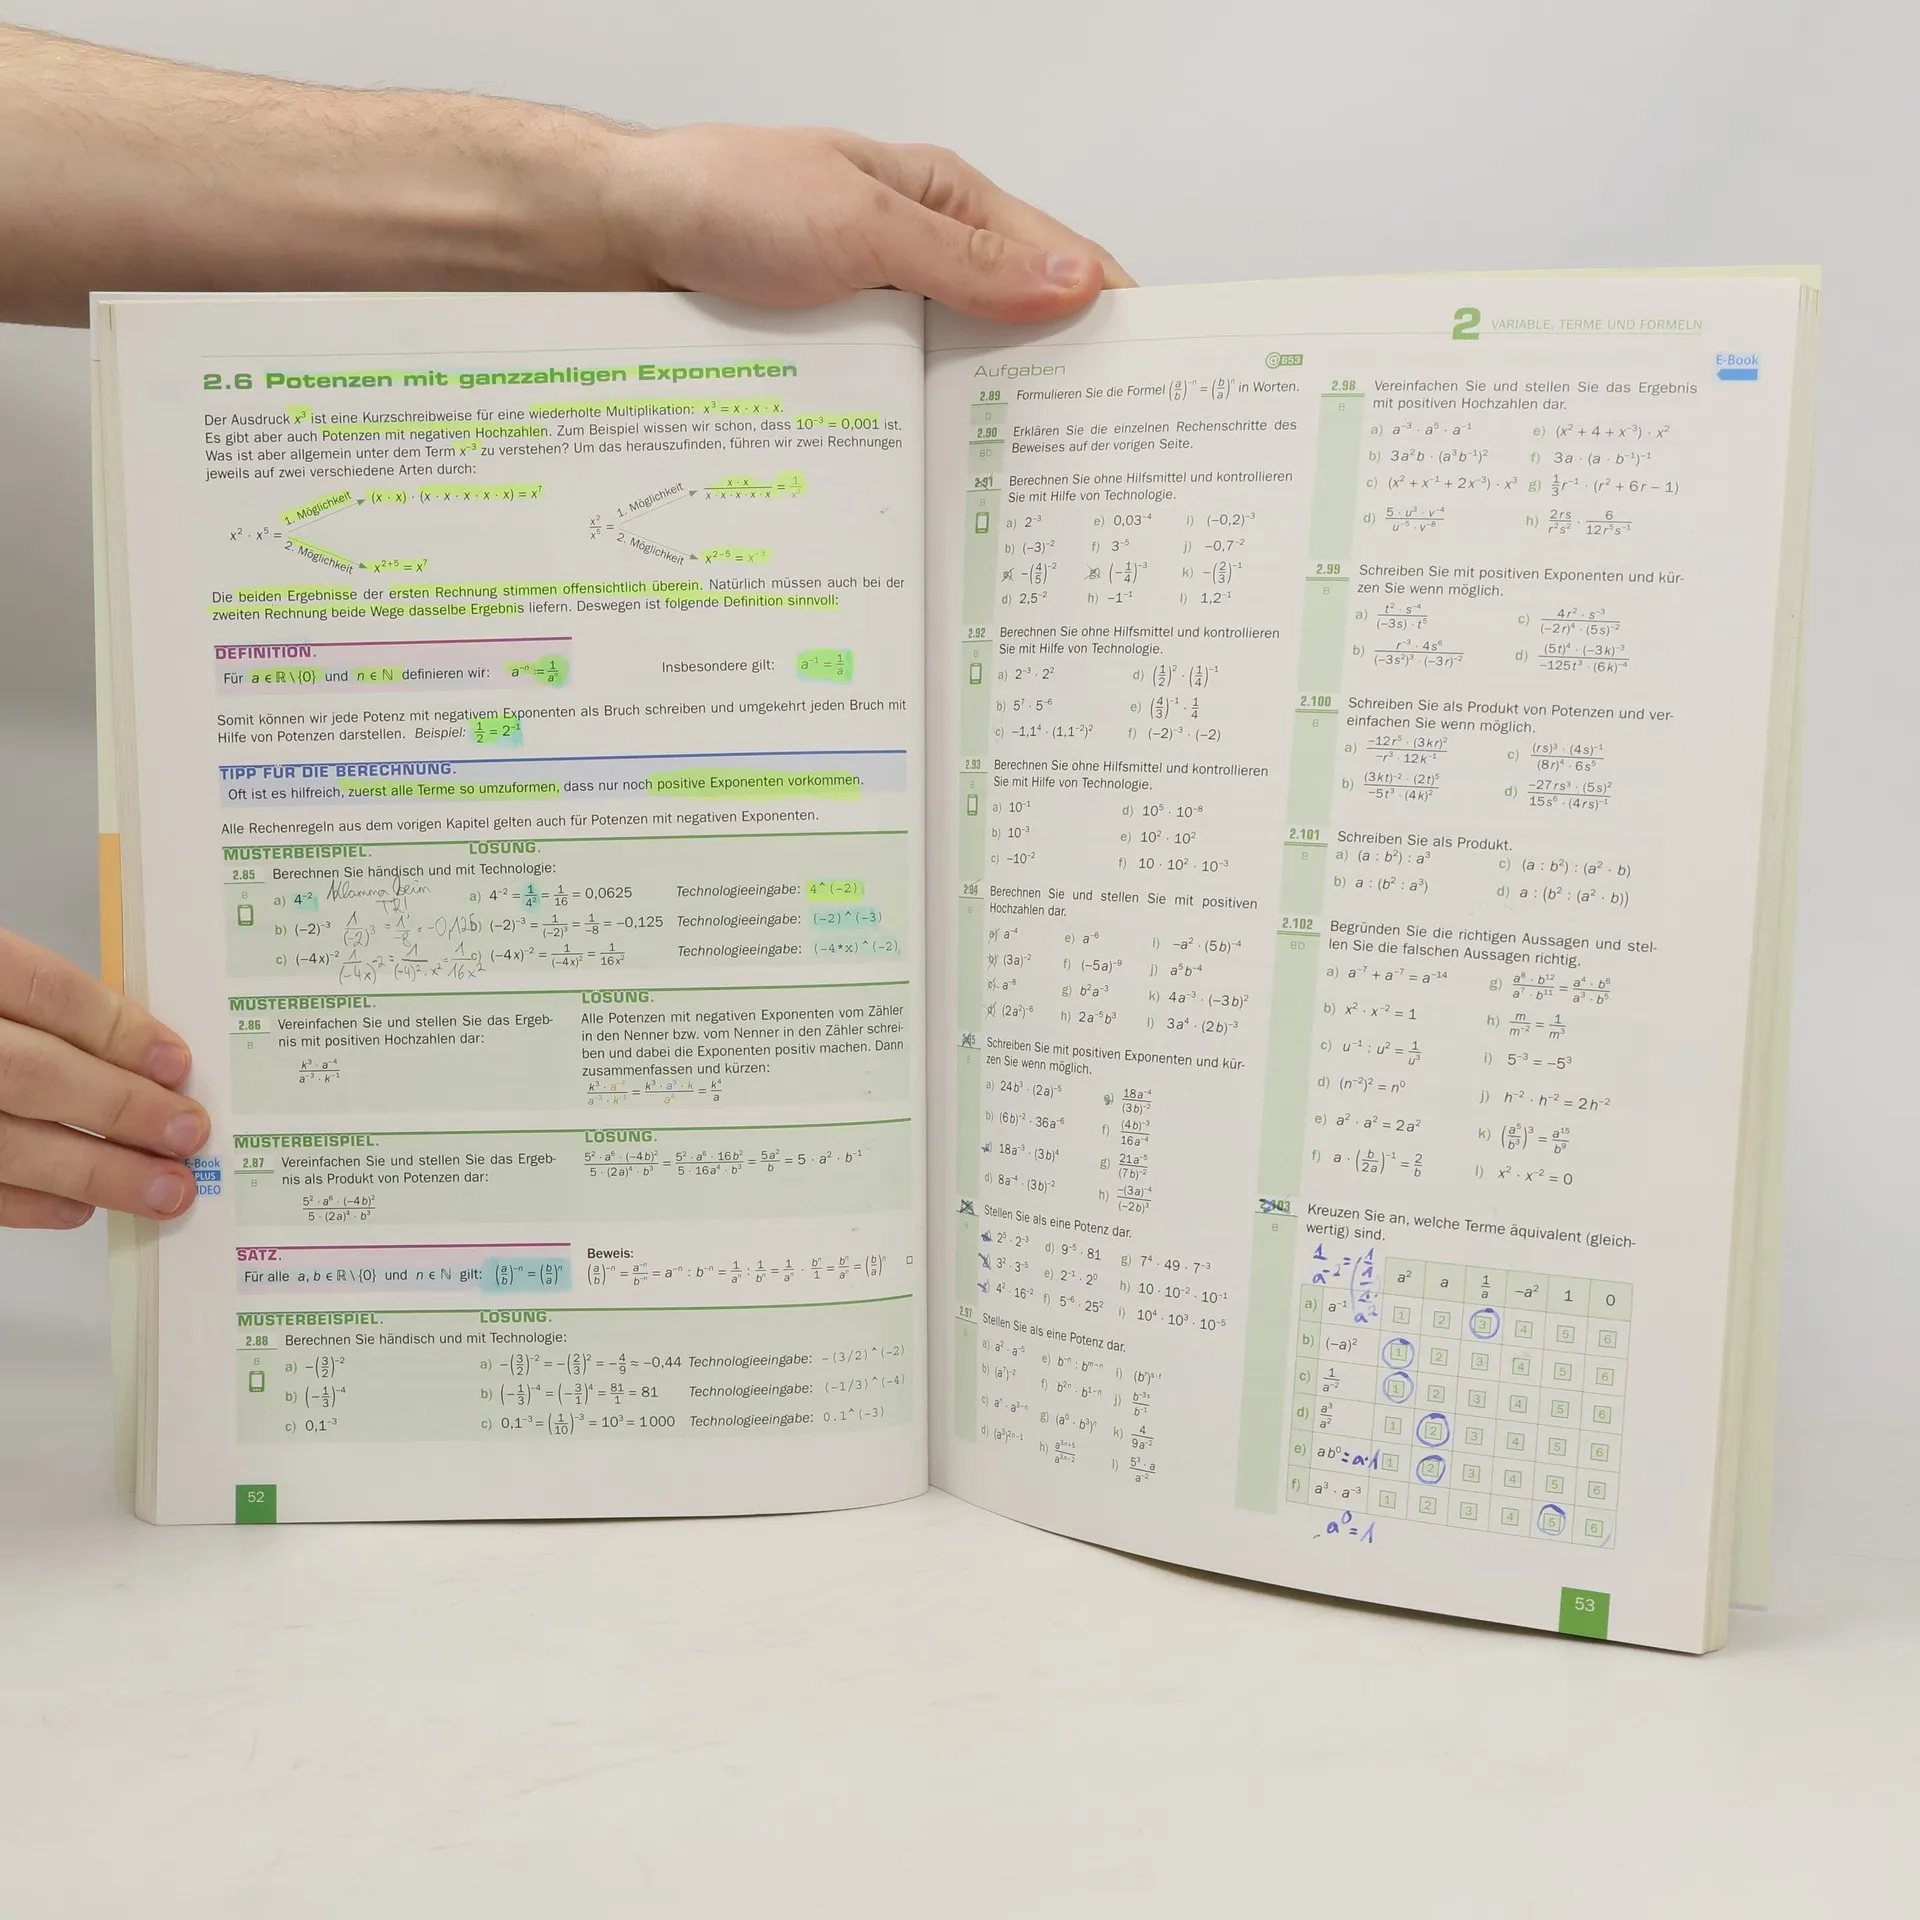 2.6 Potenzen mit ganzzahligen Exponenten
Der Ausdruck x³ ist eine Kurzschreibweise für eine wiederholte Multiplikation: x³ = x · x · x.
Es gibt aber auch Potenzen mit negativen Hochzahlen. Zum Beispiel wissen wir schon, dass 10⁻³ = 0,001 ist.
Was ist aber allgemein unter dem Term x⁻³ zu verstehen? Um das herauszufinden, führen wir zwei Rechnungen
jeweils auf zwei verschiedene Arten durch:
x² · x⁵ =
1. Möglichkeit (x · x) · (x · x · x · x · x) = x⁷
2. Möglichkeit x²⁺⁵ = x⁷
x²/x⁵ =
1. Möglichkeit x · x / x · x · x · x · x = 1/x³
2. Möglichkeit x²⁻⁵ = x⁻³
Die beiden Ergebnisse der ersten Rechnung stimmen offensichtlich überein. Natürlich müssen auch bei der
zweiten Rechnung beide Wege dasselbe Ergebnis liefern. Deswegen ist folgende Definition sinnvoll:
DEFINITION.
Für a ∈ ℝ\{0} und n ∈ ℕ definieren wir: a⁻ⁿ := 1/aⁿ Insbesondere gilt: a⁻¹ = 1/a
Somit können wir jede Potenz mit negativem Exponenten als Bruch schreiben und umgekehrt jeden Bruch mit
Hilfe von Potenzen darstellen. Beispiel: 1/2 = 2⁻¹
TIPP FÜR DIE BERECHNUNG.
Oft ist es hilfreich, zuerst alle Terme so umzuformen, dass nur noch positive Exponenten vorkommen.
Alle Rechenregeln aus dem vorigen Kapitel gelten auch für Potenzen mit negativen Exponenten.
MUSTERBEISPIEL. LÖSUNG.
2.85 Berechnen Sie händisch und mit Technologie:
B
a) 4⁻² Klammer beim TR! a) 4⁻² = 1/4² = 1/16 = 0,0625 Technologieeingabe: 4^(-2)
b) (−2)⁻³ 1/(−2)³ = 1/−8 = −0,125 b) (−2)⁻³ = 1/(−2)³ = 1/−8 = −0,125 Technologieeingabe: (-2)^(-3)
c) (−4x)⁻² c) (−4x)⁻² = 1/(−4x)² = 1/16x² Technologieeingabe: (-4*x)^(-2)
MUSTERBEISPIEL. LÖSUNG.
2.86 Vereinfachen Sie und stellen Sie das Ergeb-
nis mit positiven Hochzahlen dar:
B
k³ · a⁻⁴ / a⁻³ · k⁻¹
Alle Potenzen mit negativen Exponenten vom Zähler
in den Nenner bzw. vom Nenner in den Zähler schrei-
ben und dabei die Exponenten positiv machen. Dann
zusammenfassen und kürzen:
k³ · a⁻⁴ / a⁻³ · k⁻¹ = k³ · a³ · k / a⁴ = k⁴/a
E-Book
PLUS
IDEO
MUSTERBEISPIEL. LÖSUNG.
2.87 Vereinfachen Sie und stellen Sie das Ergeb-
nis als Produkt von Potenzen dar:
B
5² · a⁶ · (−4b)² / 5 · (2a)⁴ · b³
5² · a⁶ · (−4b)² / 5 · (2a)⁴ · b³ = 5² · a⁶ · 16b² / 5 · 16a⁴ · b³ = 5a²/b = 5 · a² · b⁻¹
SATZ.
Für alle a, b ∈ ℝ\{0} und n ∈ ℕ gilt: (a/b)⁻ⁿ = (b/a)ⁿ
Beweis:
(a/b)⁻ⁿ = a⁻ⁿ/b⁻ⁿ = a⁻ⁿ : b⁻ⁿ = 1/aⁿ : 1/bⁿ = 1/aⁿ · bⁿ/1 = bⁿ/aⁿ = (b/a)ⁿ □
MUSTERBEISPIEL. LÖSUNG.
2.88 Berechnen Sie händisch und mit Technologie:
B
a) −(3/2)⁻² a) −(3/2)⁻² = −(2/3)² = −4/9 ≈ −0,44 Technologieeingabe: -(3/2)^(-2)
b) (−1/3)⁻⁴ b) (−1/3)⁻⁴ = (−3/1)⁴ = 81/1 = 81 Technologieeingabe: (-1/3)^(-4)
c) 0,1⁻³ c) 0,1⁻³ = (1/10)⁻³ = 10³ = 1000 Technologieeingabe: 0.1^(-3)
52
2 VARIABLE, TERME UND FORMELN
E-Book
Aufgaben
@B53
2.89 Formulieren Sie die Formel (a/b)⁻ⁿ = (b/a)ⁿ in Worten.
D
2.90 Erklären Sie die einzelnen Rechenschritte des
BD
Beweises auf der vorigen Seite.
2.91 Berechnen Sie ohne Hilfsmittel und kontrollieren
Sie mit Hilfe von Technologie.
B
a) 2⁻³ e) 0,03⁻⁴ i) (−0,2)⁻³
b) (−3)⁻² f) 3⁻⁵ j) −0,7⁻²
c) −(4/5)⁻² g) (−1/4)⁻³ k) −(2/3)⁻¹
d) 2,5⁻² h) −1⁻¹ l) 1,2⁻¹
2.92 Berechnen Sie ohne Hilfsmittel und kontrollieren
Sie mit Hilfe von Technologie.
B
a) 2⁻³ · 2² d) (1/2)² · (1/4)⁻¹
b) 5⁷ · 5⁻⁶ e) (4/3)⁻¹ · 1/4
c) −1,1⁴ · (1,1⁻²)² f) (−2)⁻³ · (−2)
2.93 Berechnen Sie ohne Hilfsmittel und kontrollieren
Sie mit Hilfe von Technologie.
B
a) 10⁻¹ d) 10⁵ · 10⁻⁸
b) 10⁻³ e) 10² · 10²
c) −10⁻² f) 10 · 10² · 10⁻³
2.94 Berechnen Sie und stellen Sie mit positiven
Hochzahlen dar.
B
a) a⁻⁴ e) a⁻⁶ i) −a² · (5b)⁻⁴
b) (3a)⁻² f) (−5a)⁻⁹ j) a⁵b⁻⁴
c) a⁻⁸ g) b²a⁻³ k) 4a⁻³ · (−3b)²
d) (2a²)⁻⁶ h) 2a⁻⁵b³ l) 3a⁴ · (2b)⁻³
2.95 Schreiben Sie mit positiven Exponenten und kür-
zen Sie wenn möglich.
B
a) 24b³ · (2a)⁻⁵ e) 18a⁻⁴/(3b)⁻²
b) (6b)⁻² · 36a⁻⁶ f) (4b)⁻³/16a⁻⁴
c) 18a⁻³ · (3b)⁴ g) 21a⁻⁵/(7b)⁻²
d) 8a⁻⁴ · (3b)⁻² h) −(3a)⁻⁴/(−2b)³
Stellen Sie als eine Potenz dar.
a) 2⁵ · 2⁻³ d) 9⁻⁵ · 81 g) 7⁴ · 49 · 7⁻³
b) 3² · 3⁻⁵ e) 2⁻¹ · 2⁰ h) 10 · 10⁻² · 10⁻¹
c) 4² · 16⁻² f) 5⁻⁶ · 25² i) 10⁴ · 10³ · 10⁻⁵
2.97 Stellen Sie als eine Potenz dar.
B
a) a² · a⁻⁵ e) b⁻ⁿ : bᵐ⁻ⁿ i) (bʳ)ˢ·ᵗ
b) (a⁷)⁻² f) b²ⁿ · b¹⁻ⁿ j) b⁻³ˢ/b⁻¹
c) aⁿ · a³⁻ⁿ g) (a⁰ · b³)ⁿ k) 4/9a⁻²
d) (a³)²ⁿ⁻¹ h) a³ⁿ⁺⁵/a³ⁿ⁻² l) 5³ · a/a⁻²
2.98 Vereinfachen Sie und stellen Sie das Ergebnis
mit positiven Hochzahlen dar.
B
a) a⁻³ · a⁵ · a⁻¹ e) (x² + 4 + x⁻³) · x²
b) 3a²b · (a³b⁻¹)² f) 3a · (a · b⁻¹)⁻¹
c) (x² + x⁻¹ + 2x⁻³) · x³ g) 1/3 r⁻¹ · (r² + 6r − 1)
d) 5 · u³ · v⁻⁴ / u⁻⁵ · v⁻⁸ h) 2rs/r²s² · 6/12r⁵s⁻¹
2.99 Schreiben Sie mit positiven Exponenten und kür-
zen Sie wenn möglich.
B
a) t² · s⁻⁴ / (−3s) · t⁵ c) 4r² · s⁻³ / (−2r)⁴ · (5s)⁻²
b) r⁻³ · 4s⁶ / (−3s²)³ · (−3r)⁻² d) (5t)⁴ · (−3k)⁻³ / −125t³ · (6k)⁻⁴
2.100 Schreiben Sie als Produkt von Potenzen und ver-
einfachen Sie wenn möglich.
B
a) −12r⁵ · (3kr)² / −r³ · 12k⁻¹ c) (rs)³ · (4s)⁻¹ / (8r)⁴ · 6s⁵
b) (3kt)⁻² · (2t)⁵ / −5t³ · (4k)² d) −27rs³ · (5s)² / 15s⁶ · (4rs)⁻¹
2.101 Schreiben Sie als Produkt.
B
a) (a : b²) : a³ c) (a : b²) : (a² · b)
b) a : (b² : a³) d) a : (b² : (a² · b))
2.102 Begründen Sie die richtigen Aussagen und stel-
len Sie die falschen Aussagen richtig.
BD
a) a⁻⁷ + a⁻⁷ = a⁻¹⁴ g) a⁸ · b¹²/a⁷ · b¹¹ = a⁴ · b⁶/a³ · b⁵
b) x² · x⁻² = 1 h) m/m⁻² = 1/m³
c) u⁻¹ : u² = 1/u³ i) 5⁻³ = −5³
d) (n⁻²)² = n⁰ j) h⁻² · h⁻² = 2h⁻²
e) a² · a² = 2a² k) (a⁵/b³)³ = a¹⁵/b⁹
f) a · (b/2a)⁻¹ = 2/b l) x² · x⁻² = 0
2.103 Kreuzen Sie an, welche Terme äquivalent (gleich-
wertig) sind.
B
a² a 1/a −a² 1 0
a) a⁻¹ 1 2 3 4 5 6
b) (−a)² 1 2 3 4 5 6
c) 1/a⁻² 1 2 3 4 5 6
d) a³/a² 1 2 3 4 5 6
e) ab⁰ = a·1 1 2 3 4 5 6
f) a³ · a⁻³ 1 2 3 4 5 6
a⁰ = 1
53